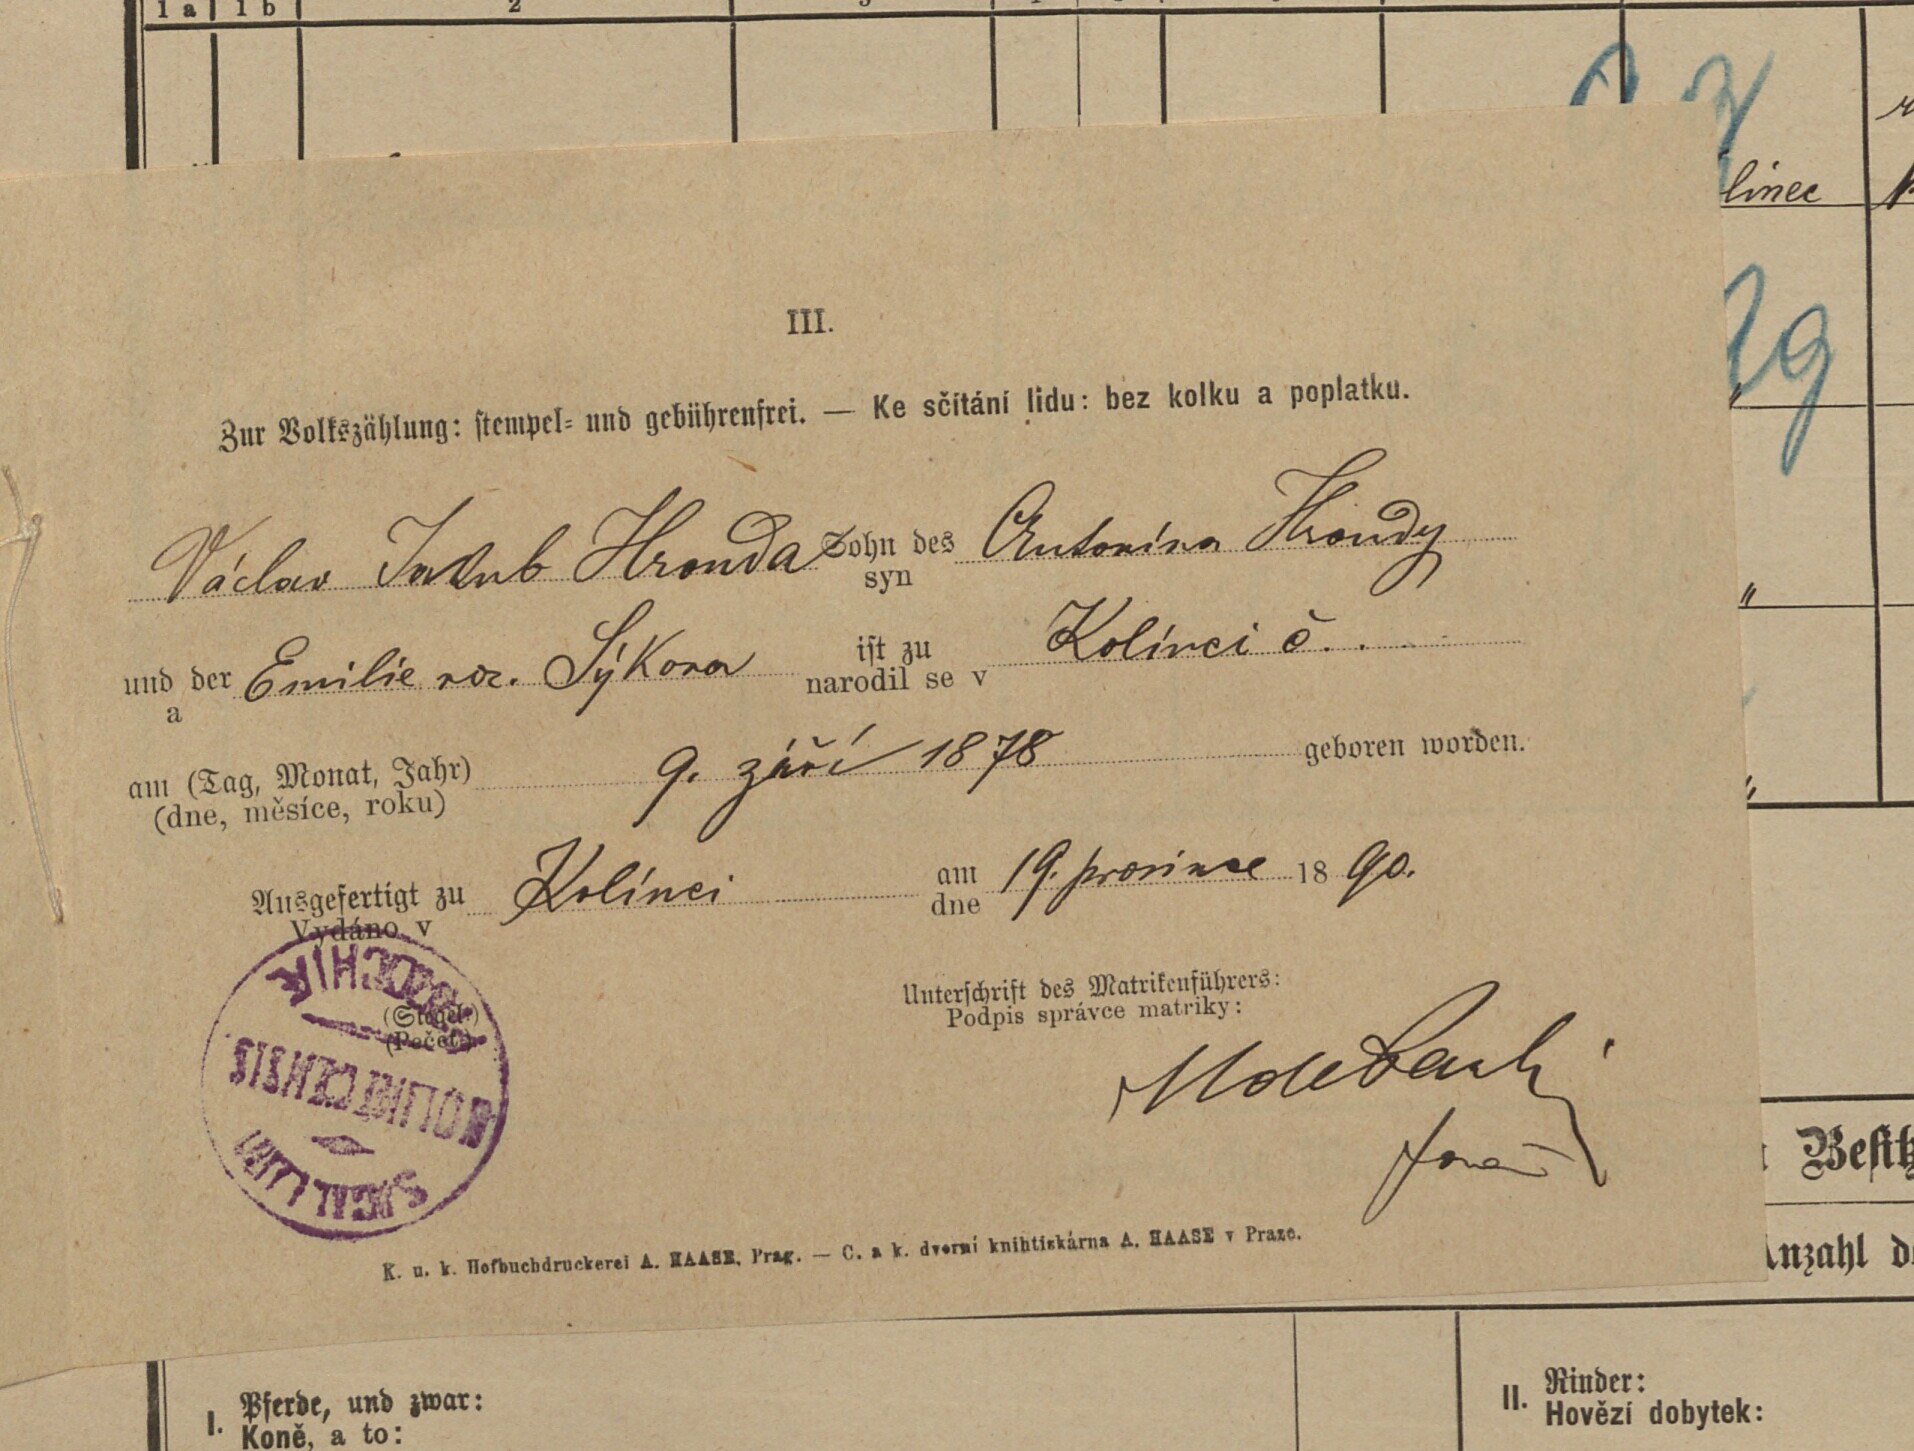 1 a 1 b 2
linec
29
III.
Zur Volkszählung: stempel- und gebührenfrei. — Ke sčítání lidu: bez kolku a poplatku.
Václav Jakub Hronda Sohn des Antonína Hrondy
syn
und der Emilie roz. Sýkora ist zu Kolínci č.
a narodil se v
am (Tag, Monat, Jahr) 9. září 1878 geboren worden.
(dne, měsíce, roku)
Ausgefertigt zu Kolínci am 19. prosince 1890.
Vydáno v dne
(Siegel.)
(Pečeť.)
KOLINECENSIS
SIGILLUM
Unterschrift des Matrikenführers:
Podpis správce matriky:
K. u. k. Hofbuchdruckerei A. HAASE, Prag. — C. a k. dvorní knihtiskárna A. HAASE v Praze.
Besitz
Anzahl de
I. Pferde, und zwar:
Koně, a to:
II. Rinder:
Hovězí dobytek: